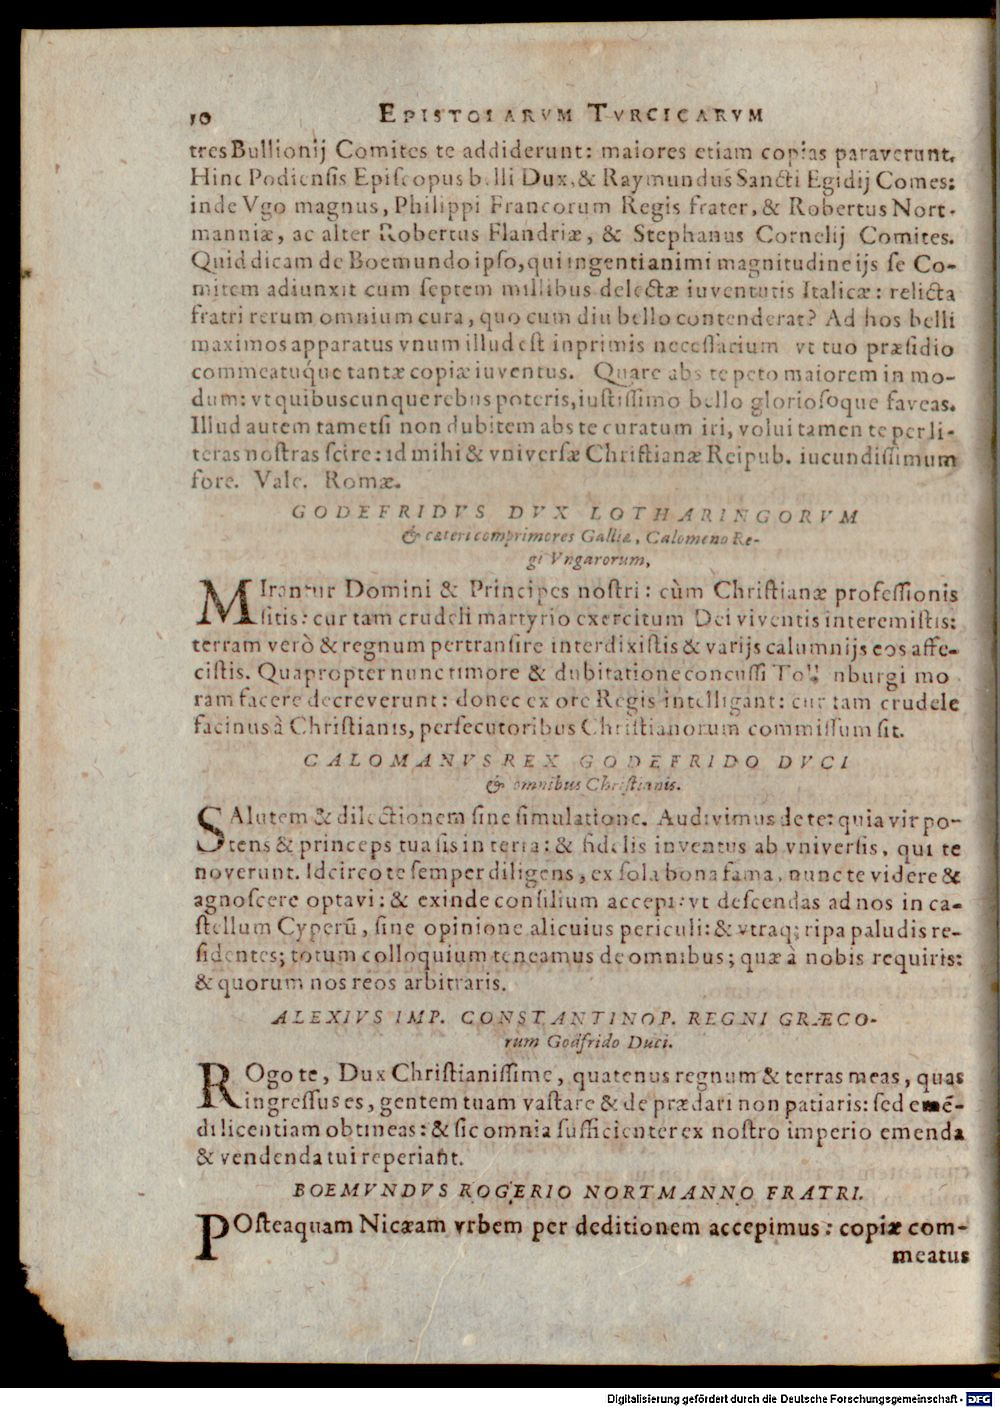 10 EPISTOLARVM TVRCICARVM
tres Bullionij Comites te addiderunt: maiores etiam copias paraverunt.
Hinc Podiensis Episcopus belli Dux, & Raymundus Sancti Egidij Comes:
inde Vgo magnus, Philippi Francorum Regis frater, & Robertus Nort-
manniæ, ac alter Robertus Flandriæ, & Stephanus Cornelij Comites.
Quid dicam de Boemundo ipso, qui ingenti animi magnitudine ijs se Co-
mitem adiunxit cum septem millibus delectæ iuventutis Italicæ: relicta
fratri rerum omnium cura, quo cum diu bello contenderat? Ad hos belli
maximos apparatus vnum illud est inprimis necessarium vt tuo præsidio
commeatuq́ue tantæ copiæ iuventus. Quare abs te peto maiorem in mo-
dum: vt quibuscunque rebus poteris, iustissimo bello gloriosoque faveas.
Illud autem tametsi non dubitem abs te curatum iri, volui tamen te per li-
teras nostras scire: id mihi & vniversæ Christianæ Reipub. iucundissimum
fore. Vale. Romæ.
GODEFRIDVS DVX LOTHARINGORVM
& cæteri comprimores Galliæ, Calomeno Re-
gi Vngarorum,
MIrantur Domini & Principes nostri: cùm Christianæ professionis
sitis: cur tam crudeli martyrio exercitum Dei viventis interemistis:
terram verò & regnum pertransire interdixistis & varijs calumnijs eos affe-
cistis. Quapropter nunc timore & dubitatione concussi nburgi mo
ram facere decreverunt: donec ex ore Regis intelligant: cur tam crudele
facinus à Christianis, persecutoribus Christianorum commissum sit.
CALOMANVS REX GODEFRIDO DVCI
& omnibus Christianis.
SAlutem & dilectionem sine simulatione. Audivimus de te: quia vir po-
tens & princeps tua sis in terra: & fidelis inventus ab vniversis, qui te
noverunt. Idcirco te semper diligens, ex sola bona fama, nunc te videre &
agnoscere optavi: & exinde consilium accepi: vt descendas ad nos in ca-
stellum Cyperū, sine opinione alicuius periculi: & vtraq; ripa paludis re-
sidentes; totum colloquium teneamus de omnibus; quæ à nobis requiris:
& quorum nos reos arbitraris.
ALEXIVS IMP. CONSTANTINOP. REGNI GRÆCO-
rum Godfrido Duci.
ROgo te, Dux Christianissime, quatenus regnum & terras meas, quas
ingressus es, gentem tuam vastare & de prædari non patiaris: sed emē-
di licentiam obtineas: & sic omnia sufficienter ex nostro imperio emenda
& vendenda tui reperiant.
BOEMVNDVS ROGERIO NORTMANNO FRATRI.
POsteaquam Nicæam vrbem per deditionem accepimus: copiæ com-
meatus
Digitalisierung gefördert durch die Deutsche Forschungsgemeinschaft - DFG